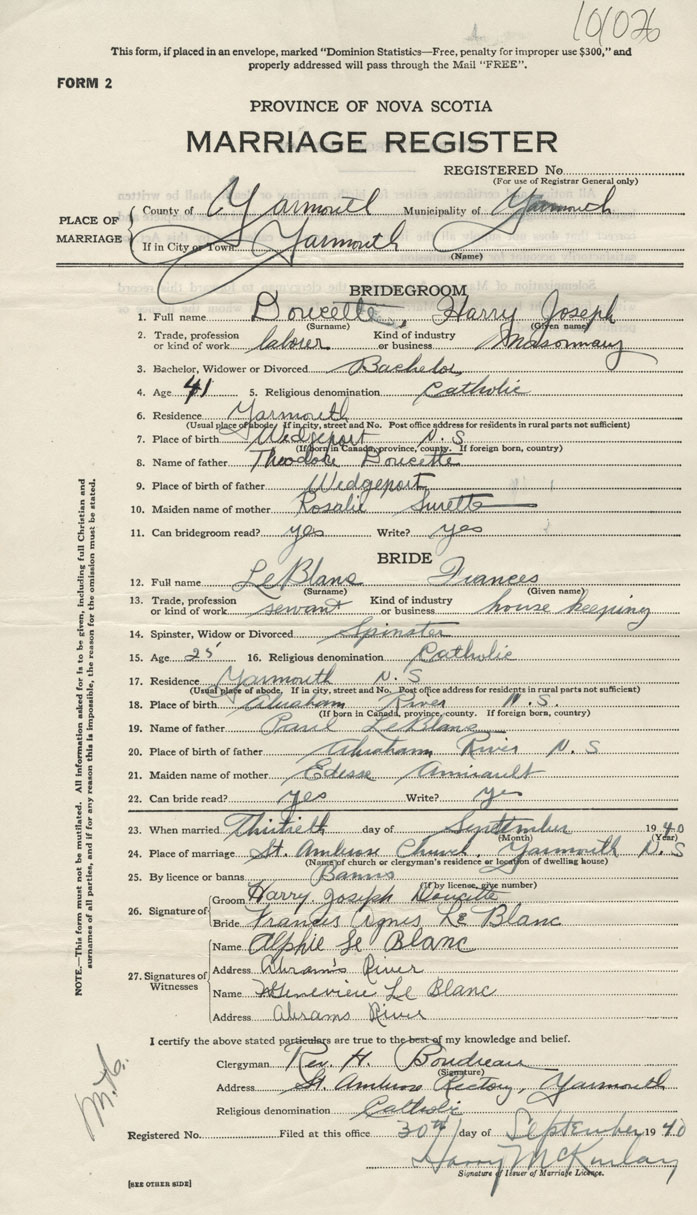 101026
This form, if placed in an envelope, marked "Dominion Statistics—Free, penalty for improper use $300," and
properly addressed will pass through the Mail "FREE".
FORM 2
PROVINCE OF NOVA SCOTIA
MARRIAGE REGISTER
REGISTERED No
(For use of Registrar General only)
PLACE OF MARRIAGE
County of Yarmouth Municipality of Yarmouth
If in City or Town Yarmouth
(Name)
BRIDEGROOM
1. Full name Doucette, Harry Joseph
(Surname) (Given name)
2. Trade, profession or kind of work labourer Kind of industry or business Masonary
3. Bachelor, Widower or Divorced Bachelor
4. Age 41 5. Religious denomination Catholic
6. Residence Yarmouth
(Usual place of abode. If in city, street and No. Post office address for residents in rural parts not sufficient)
7. Place of birth Wedgeport N.S
(If born in Canada, province, county. If foreign born, country)
8. Name of father Theodore Doucette
9. Place of birth of father Wedgeport
10. Maiden name of mother Rosalie Surette
11. Can bridegroom read? yes Write? yes
BRIDE
12. Full name LeBlanc Frances
(Surname) (Given name)
13. Trade, profession or kind of work servant Kind of industry or business house keeping
14. Spinster, Widow or Divorced Spinster
15. Age 25 16. Religious denomination Catholic
17. Residence Yarmouth N.S
(Usual place of abode. If in city, street and No. Post office address for residents in rural parts not sufficient)
18. Place of birth Abraham River N.S.
(If born in Canada, province, county. If foreign born, country)
19. Name of father Paul LeBlanc
20. Place of birth of father Abraham River N.S
21. Maiden name of mother Edesse Amirault
22. Can bride read? yes Write? yes
23. When married Thirtieth day of September 1940
(Month) (Year)
24. Place of marriage St. Ambrose Church, Yarmouth N.S
(Name of church or clergyman's residence or location of dwelling house)
25. By licence or banns Banns
(If by licence, give number)
26. Signature of
Groom Harry Joseph Doucette
Bride Frances Agnes Le Blanc
27. Signatures of Witnesses
Name Alphie Le Blanc
Address Abram's River
Name Genevieve Le Blanc
Address Abrams River
I certify the above stated particulars are true to the best of my knowledge and belief.
Clergyman Rev. H. Boudreau
(Signature)
Address St. Ambrose Rectory, Yarmouth
Religious denomination Catholic
Registered No. Filed at this office 30th day of September 1940
Harry McKinlay
Signature of Issuer of Marriage Licence.
[SEE OTHER SIDE]
NOTE.—This form must not be mutilated. All information asked for is to be given, including full Christian and
surnames of all parties, and if for any reason this is impossible, the reason for the omission must be stated.